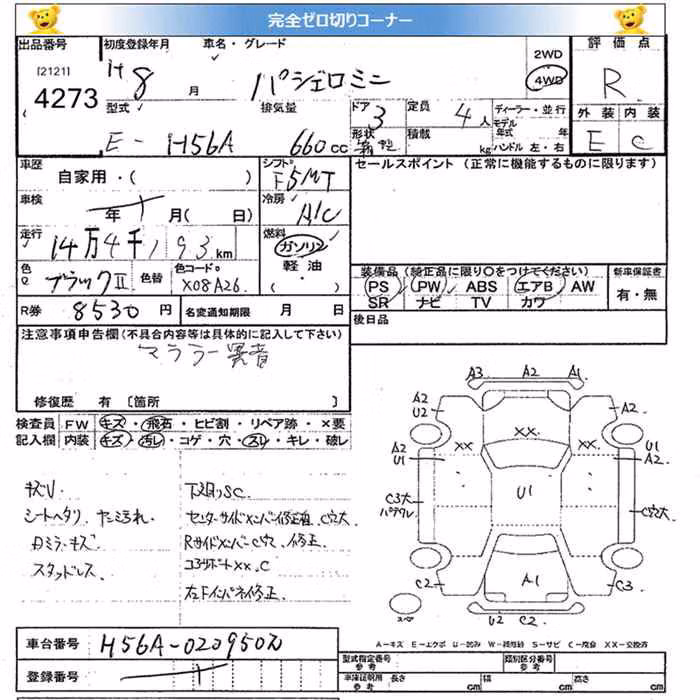 完全ゼロ切りコーナー
出品番号 初度登録年月 車名・グレード 2WD 評価点
[2121] H8 月 パジェロミニ 4WD R
4273 型式 排気量 ドア 定員 ディーラー・並行 外装 内装
3 4人 モデル年式 年
E-H56A 660cc 形状 積載 kg ハンドル 左・右 E C
車歴 シフト セールスポイント (正常に機能するものに限ります)
自家用・( ) F5MT
車検 冷房
年 月( 日) A/C
走行 燃料
14万4千193km ガソリン
色 ブラックII 色替 色コード X08A26 軽油 装備品 (純正品に限り○をつけてください) 新車保証書
・( ) PS PW ABS エアB AW 有・無
R券 8530円 名変通知期限 月 日 SR ナビ TV カワ
後日品
注意事項申告欄(不具合内容等は具体的に記入して下さい)
マフラー異音
修復歴 有 〔箇所 〕
検査員 FW キズ・飛石・ヒビ割・リペア跡・×要
記入欄 内装 キズ・汚れ・コゲ・穴・スレ・キレ・破レ
A3 A2 A1
A2 U2 A2
XX XX XX
A2 U1 U1 A2
U1
C3大 C穴大
C2 A1 C3
U2 C2
キズU 下廻りSC
シートヘタリ ヤニ汚れ センターサイドメンバー修正 C穴大
Dミラーキズ RサイドメンバーC穴 修正
スタッドレス コアサポートXX.C
左Fインパネ修正
車台番号 H56A-0209502
登録番号
A-キズ E-エクボ U-凹み W-補修跡 S-サビ C-腐食 XX-交換済
型式指定番号 参考 類別区分番号 参考
車庫証明用 参考 長さ cm 幅 cm 高さ cm